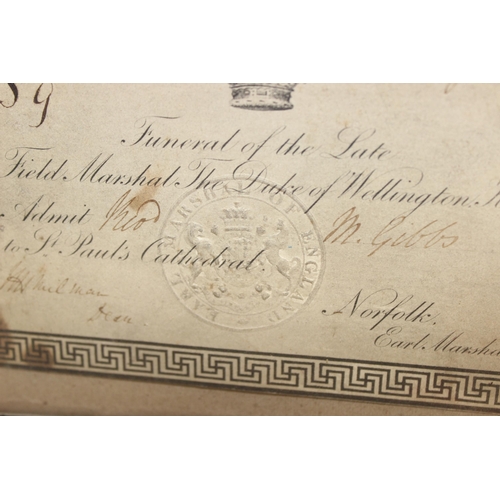 59
Funeral of the Late
Field Marshal The Duke of Wellington K
Admit M. Gibbs
to St. Paul's Cathedral.
EARL MARSHAL OF ENGLAND
H H Milman
Dean
Norfolk.
Earl Marsha